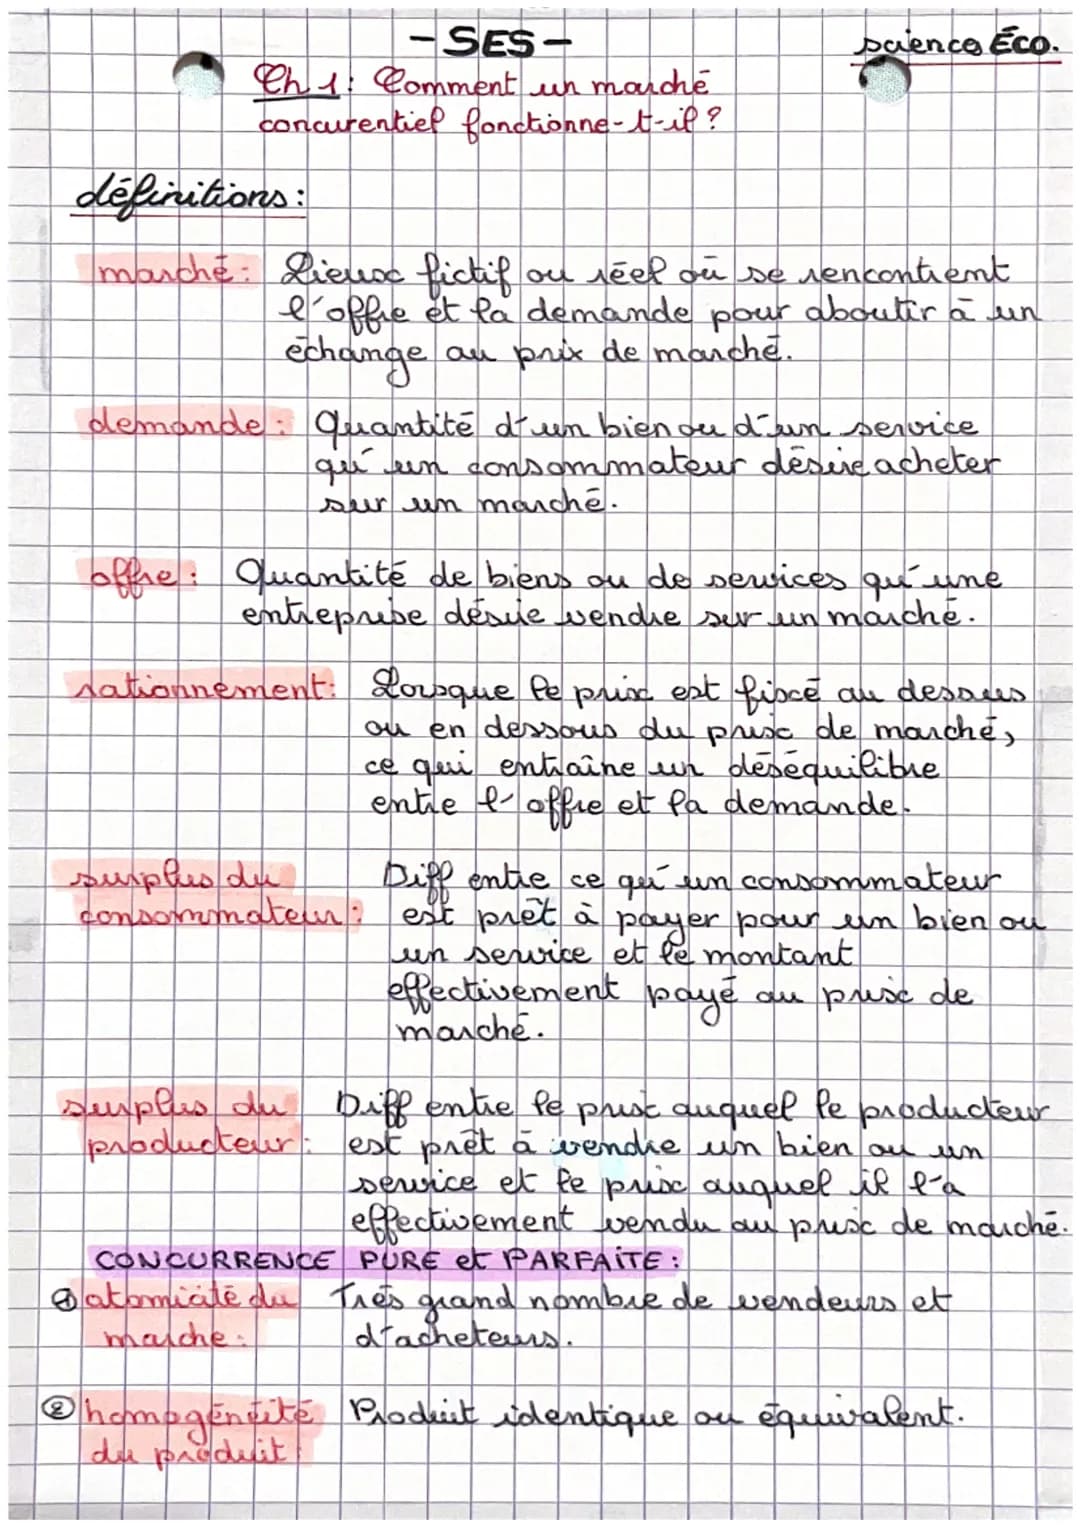 - SES -
science Éco.
Ch 1 : Comment un marché
concurentiel fonctionne-t-il ?
définitions :
marché : Lieux fictif ou réel où se rencontrent
l'offre et la demande pour aboutir à un
échange au prix de marché.
demande : Quantité d'un bien ou d'un service
qu'un consommateur désire acheter
sur un marché.
offre : Quantité de biens ou de services qu'une
entreprise désire vendre sur un marché.
rationnement : Lorsque le prix est fixé au dessus
ou en dessous du prix de marché,
ce qui entraîne un déséquilibre
entre l'offre et la demande.
surplus du Diff entre ce qu'un consommateur
consommateur : est prêt à payer pour un bien ou
un service et le montant
effectivement payé au prix de
marché.
surplus du Diff entre le prix auquel le producteur
producteur : est prêt à vendre un bien ou un
service et le prix auquel il l'a
effectivement vendu au prix de marché.
CONCURRENCE PURE et PARFAITE :
① atomicité du Très grand nombre de vendeurs et
marche : d'acheteurs.
② homogénéité Produit identique ou équivalent.
du produit :